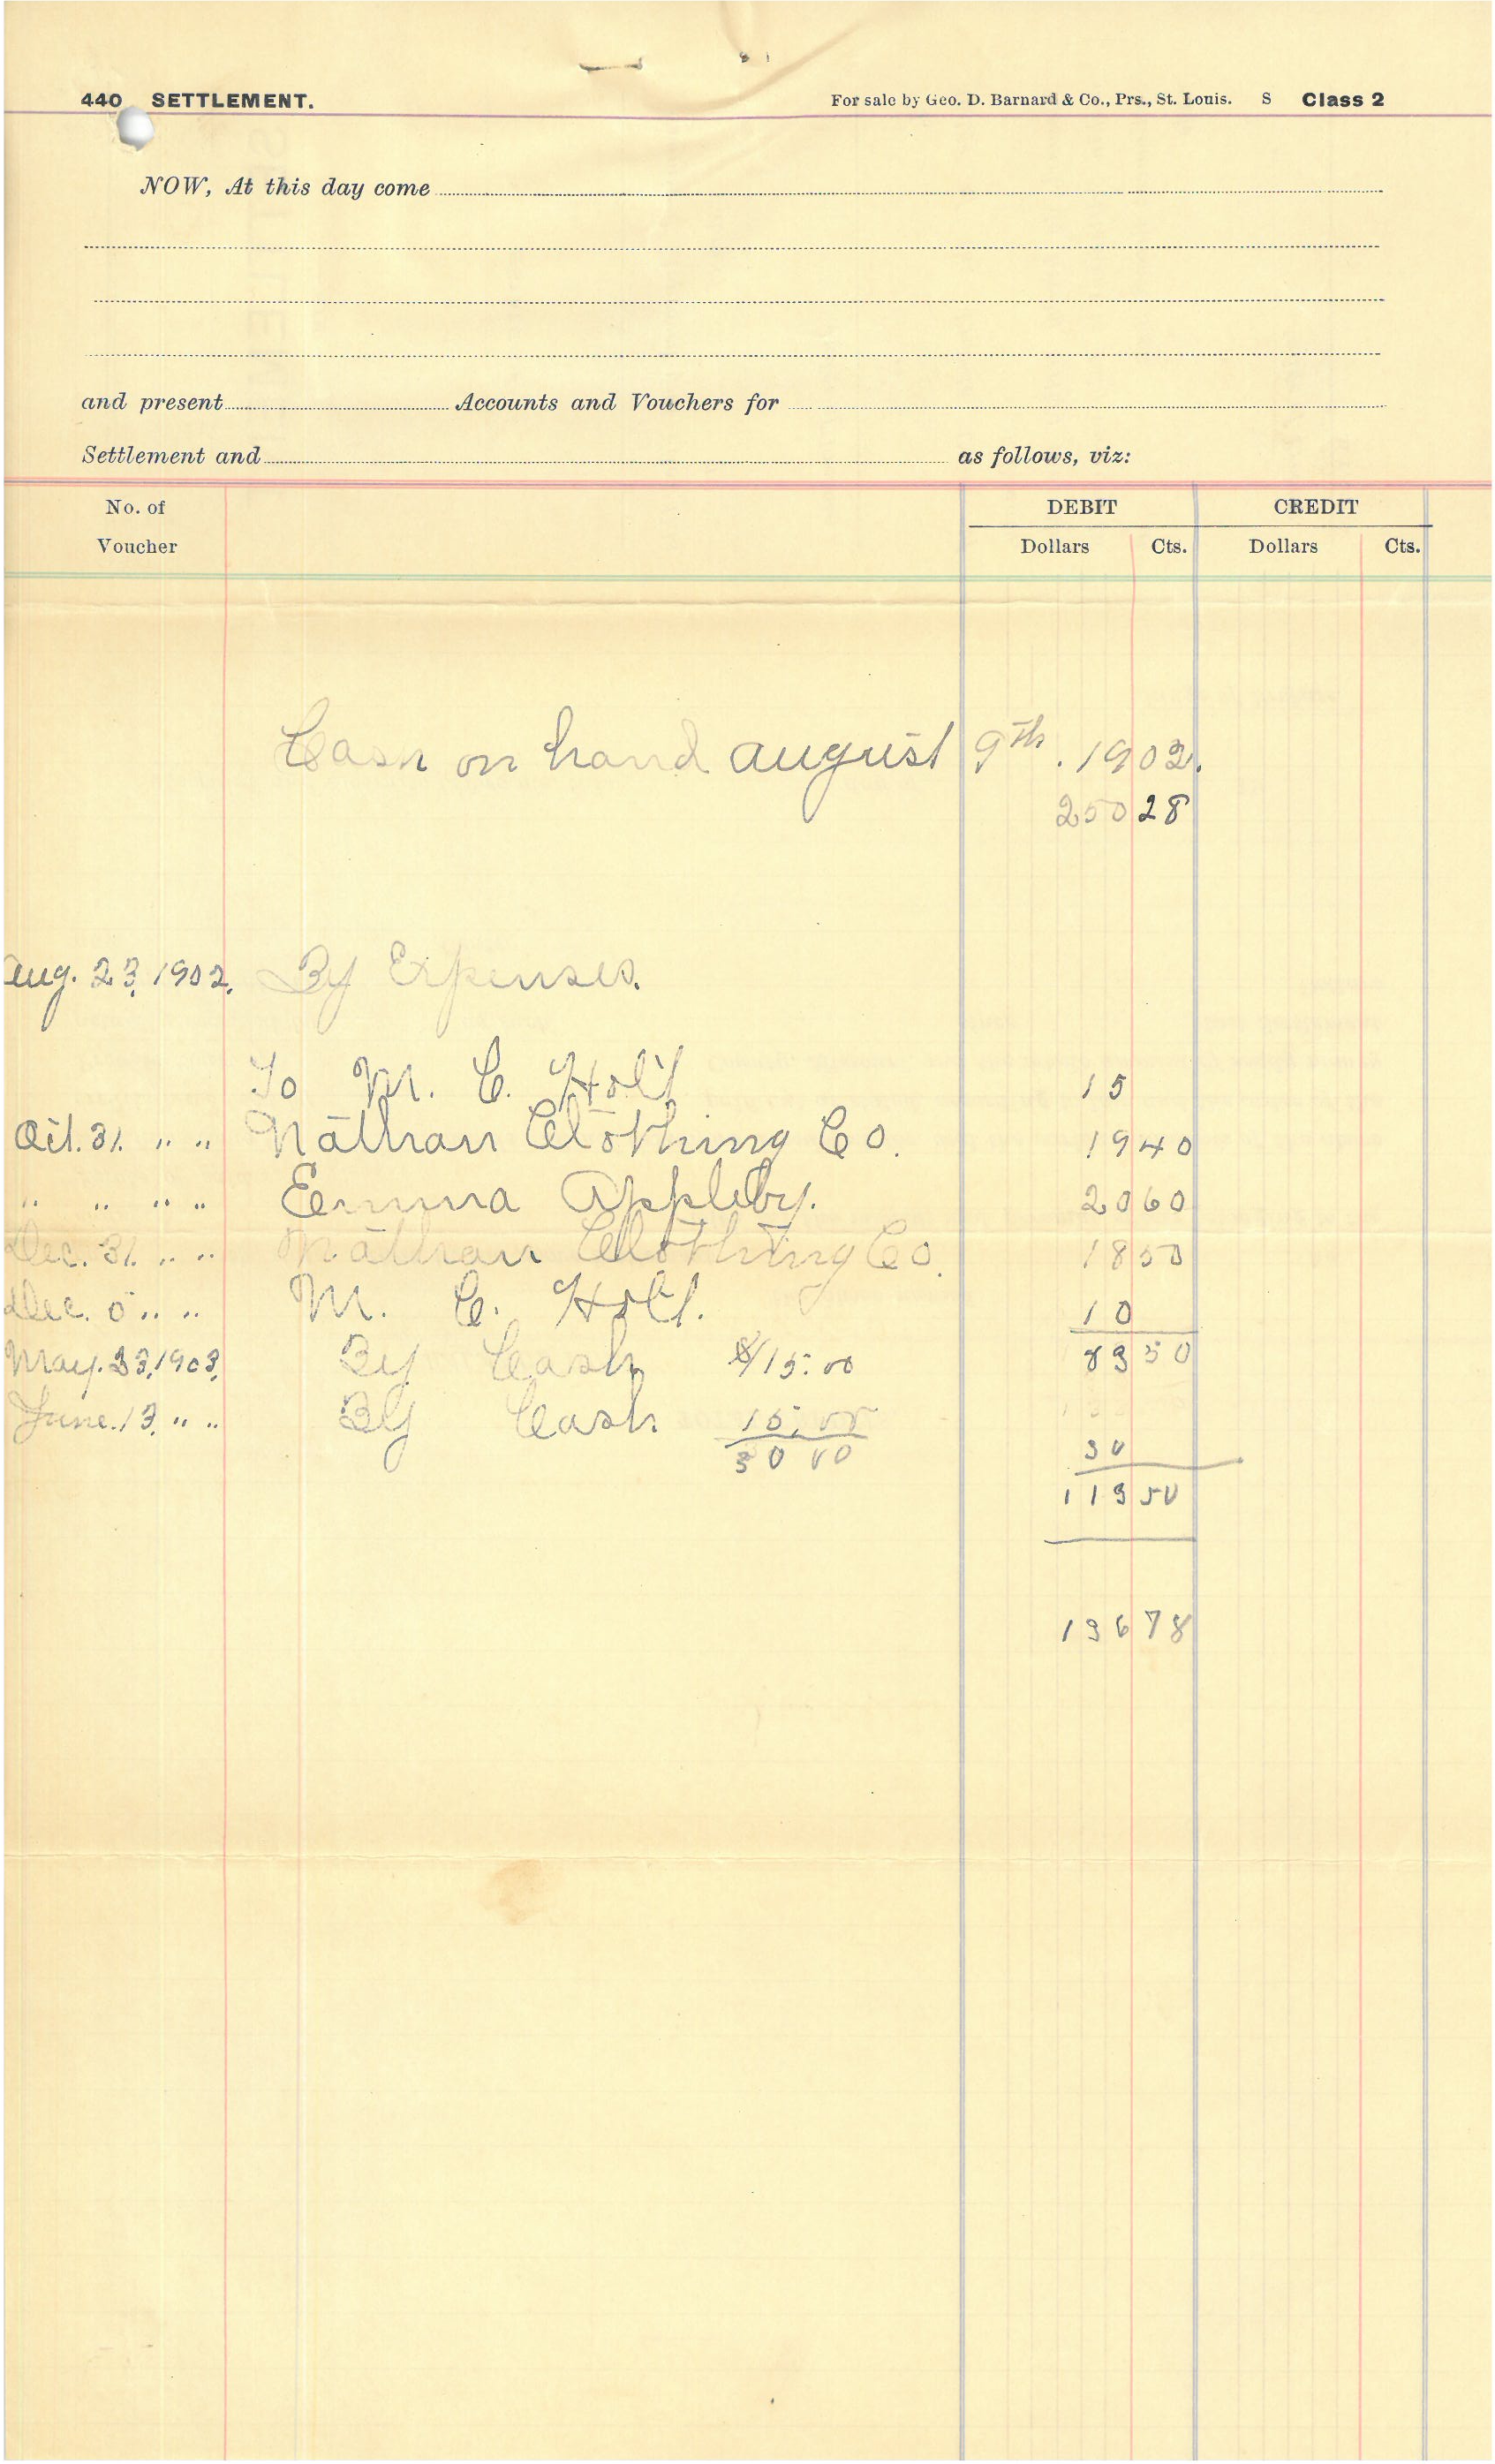 440 SETTLEMENT. For sale by Geo. D. Barnard & Co., Prs., St. Louis. S Class 2
NOW, At this day come
and present Accounts and Vouchers for
Settlement and as follows, viz:
No. of Voucher DEBIT CREDIT
Dollars Cts. Dollars Cts.
Cash on hand august 9th. 1902.
250 28
Aug. 23, 1902. By Expenses.
To M. C. Holt 15
Oct. 31. " " Nathan Clothing Co. 19 40
" " " " Emma Appleby. 20 60
Dec. 31. " " Nathan Clothing Co. 18 50
Dec. " " M. C. Holt. 10
May. 23, 1903, By Cash $15.00 83 50
June. 13, " " By Cash 15.00
30 00 30
113 50
136 78